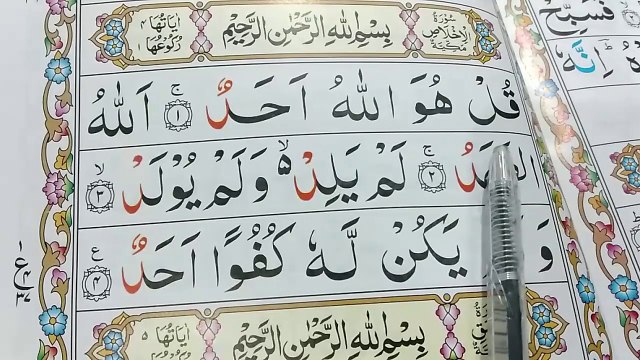 سُوْرَةُ الْاِخْلَاصِ مَكِّيَّةٌ بِسْمِ اللّٰهِ الرَّحْمٰنِ الرَّحِيْمِ اٰيَاتُهَا ۴ رُكُوْعُهَا ۱
قُلْ هُوَ اللّٰهُ اَحَدٌ ۚ ۱ اَللّٰهُ
لَمْ يَلِدْ ۙ۵ وَلَمْ يُوْلَدْ ۙ ۳
يَكُنْ لَّهٗ كُفُوًا اَحَدٌ ۴ ع
بِسْمِ اللّٰهِ الرَّحْمٰنِ الرَّحِيْمِ اٰيَاتُهَا ۵
فَسَبِّحْ
اِنَّهٗ